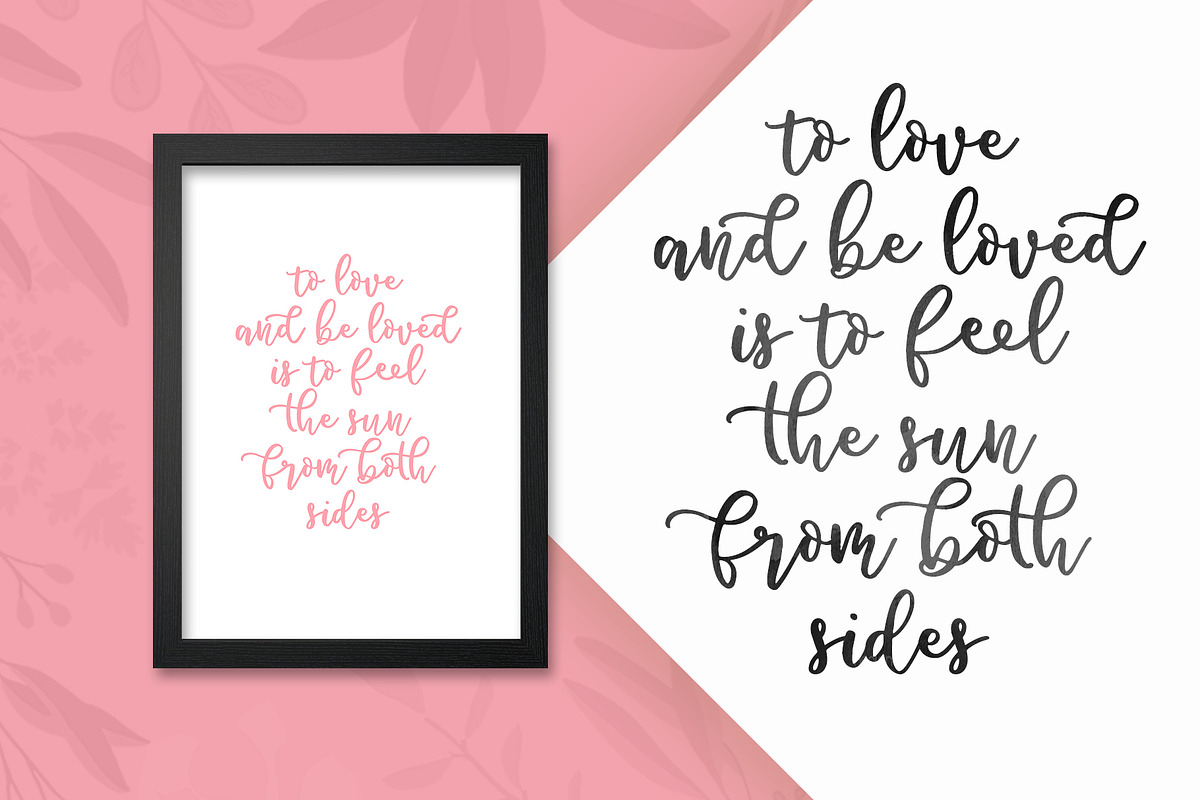 to love
and be loved
is to feel
the sun
from both
sides
to love
and be loved
is to feel
the sun
from both
sides